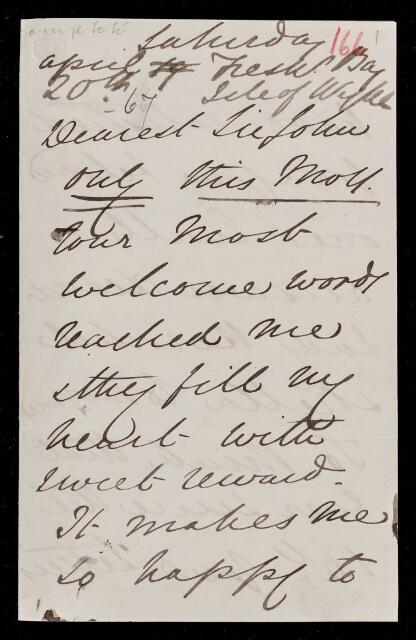 complete
Saturday 166
april 20th Fresh. Bay
-67 Isle of Wight
Dearest Sir John
only this Morg.
Your Most
welcome words
reached me
& they fill my
heart with
sweet reward.
It makes me
so happy to